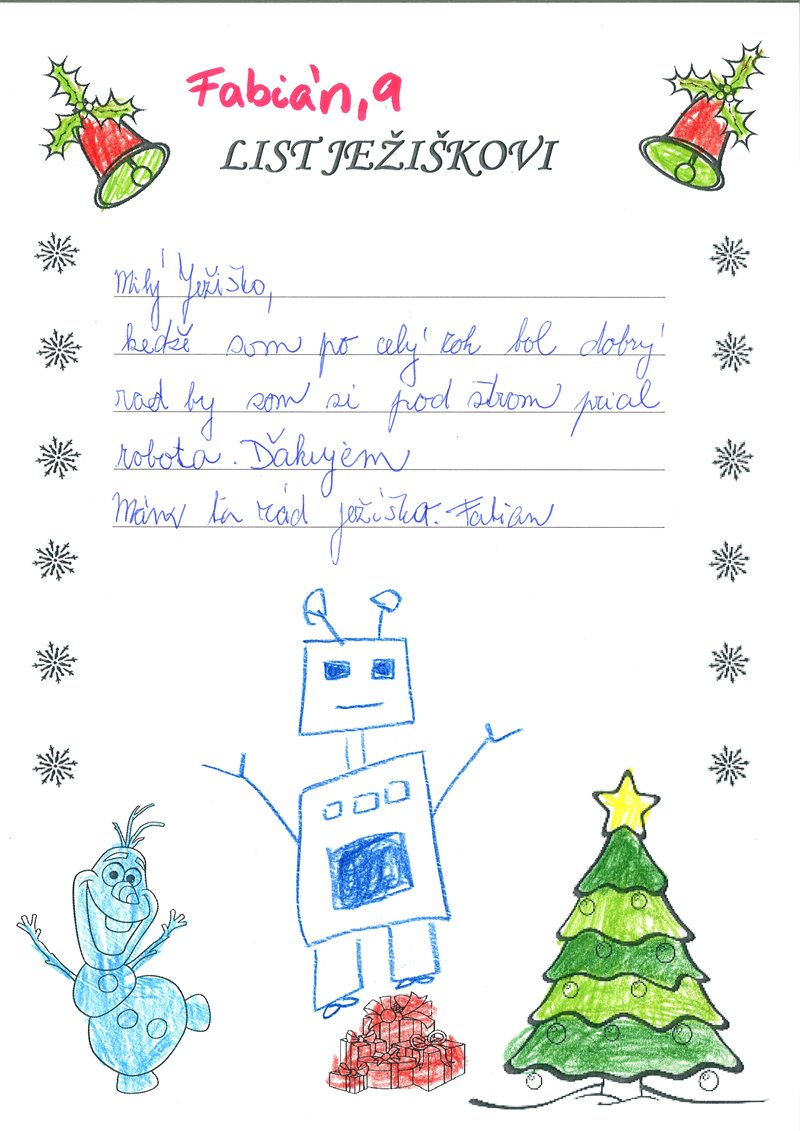 Fabián, 9
LIST JEŽIŠKOVI
Milý Ježiško,
kedže som po celý rok bol dobrý
rad by som si pod strom prial
robota. Ďakujem
Mám ťa rád ježiško. Fabian